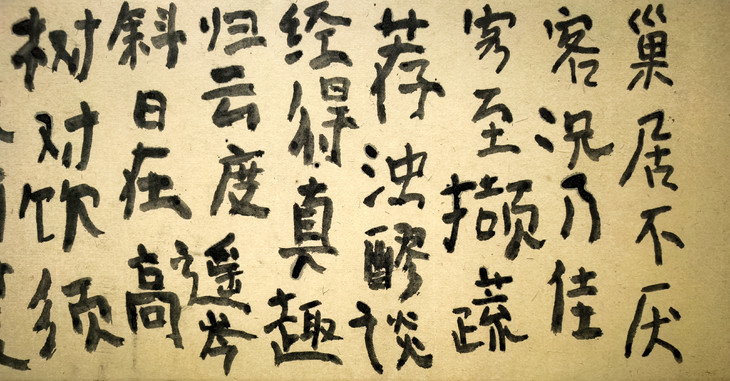 巢居不厌
客况乃佳
客至撷蔬
荐浊醪谈
经得真趣
归云度遥岑
斜日在高
树对饮须